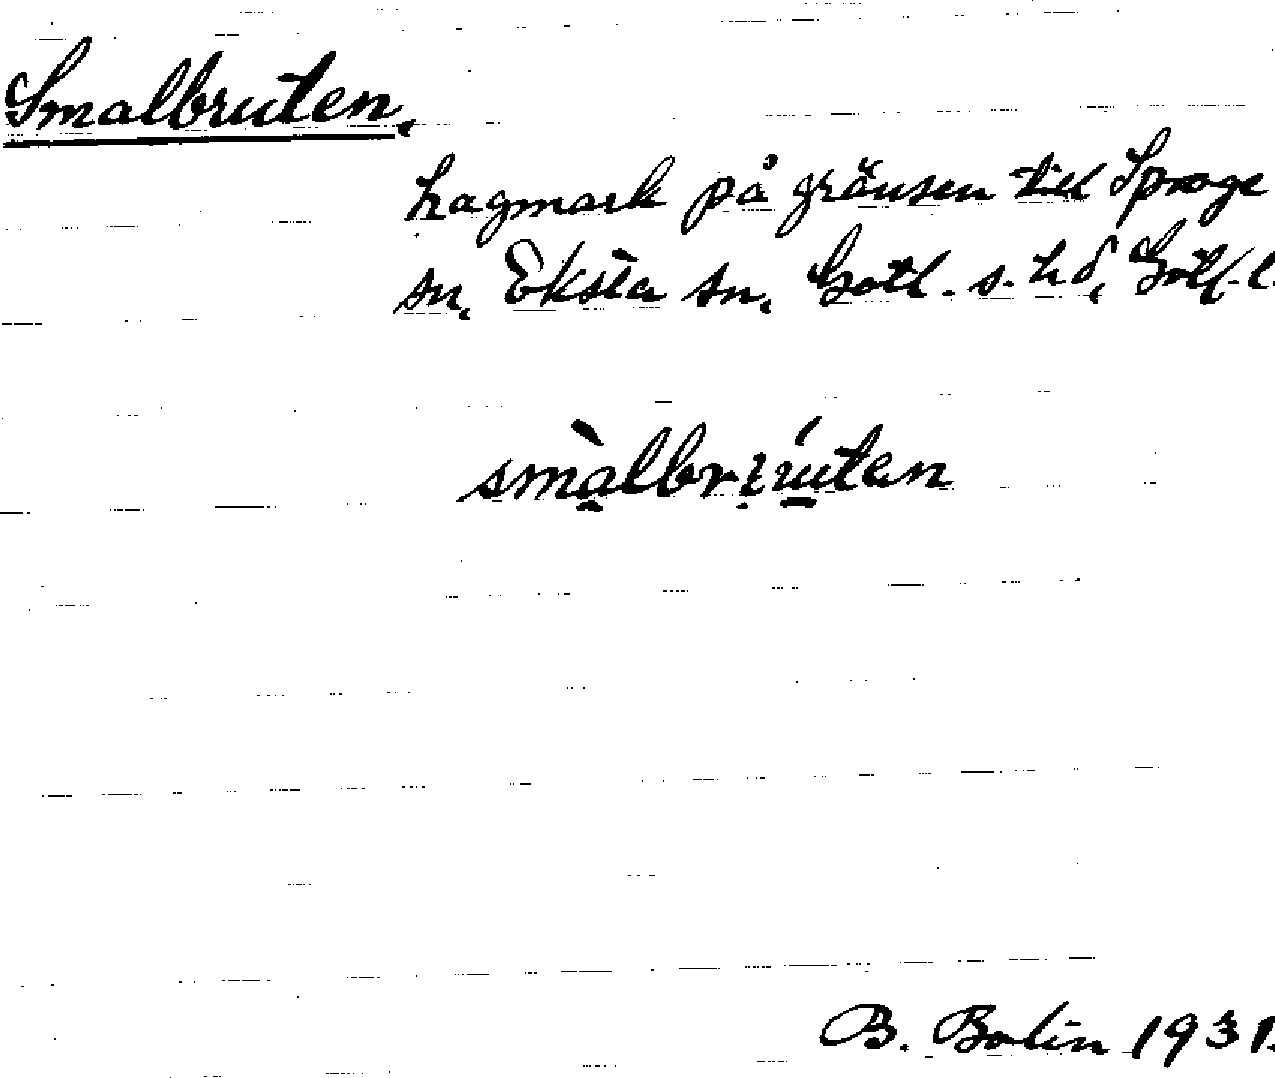 Smalbruten.
hagmark på gränsen till Sproge
sn. Eksta sn. Gotl. s. hd, Gotl. l.
B. Bolin 1931.